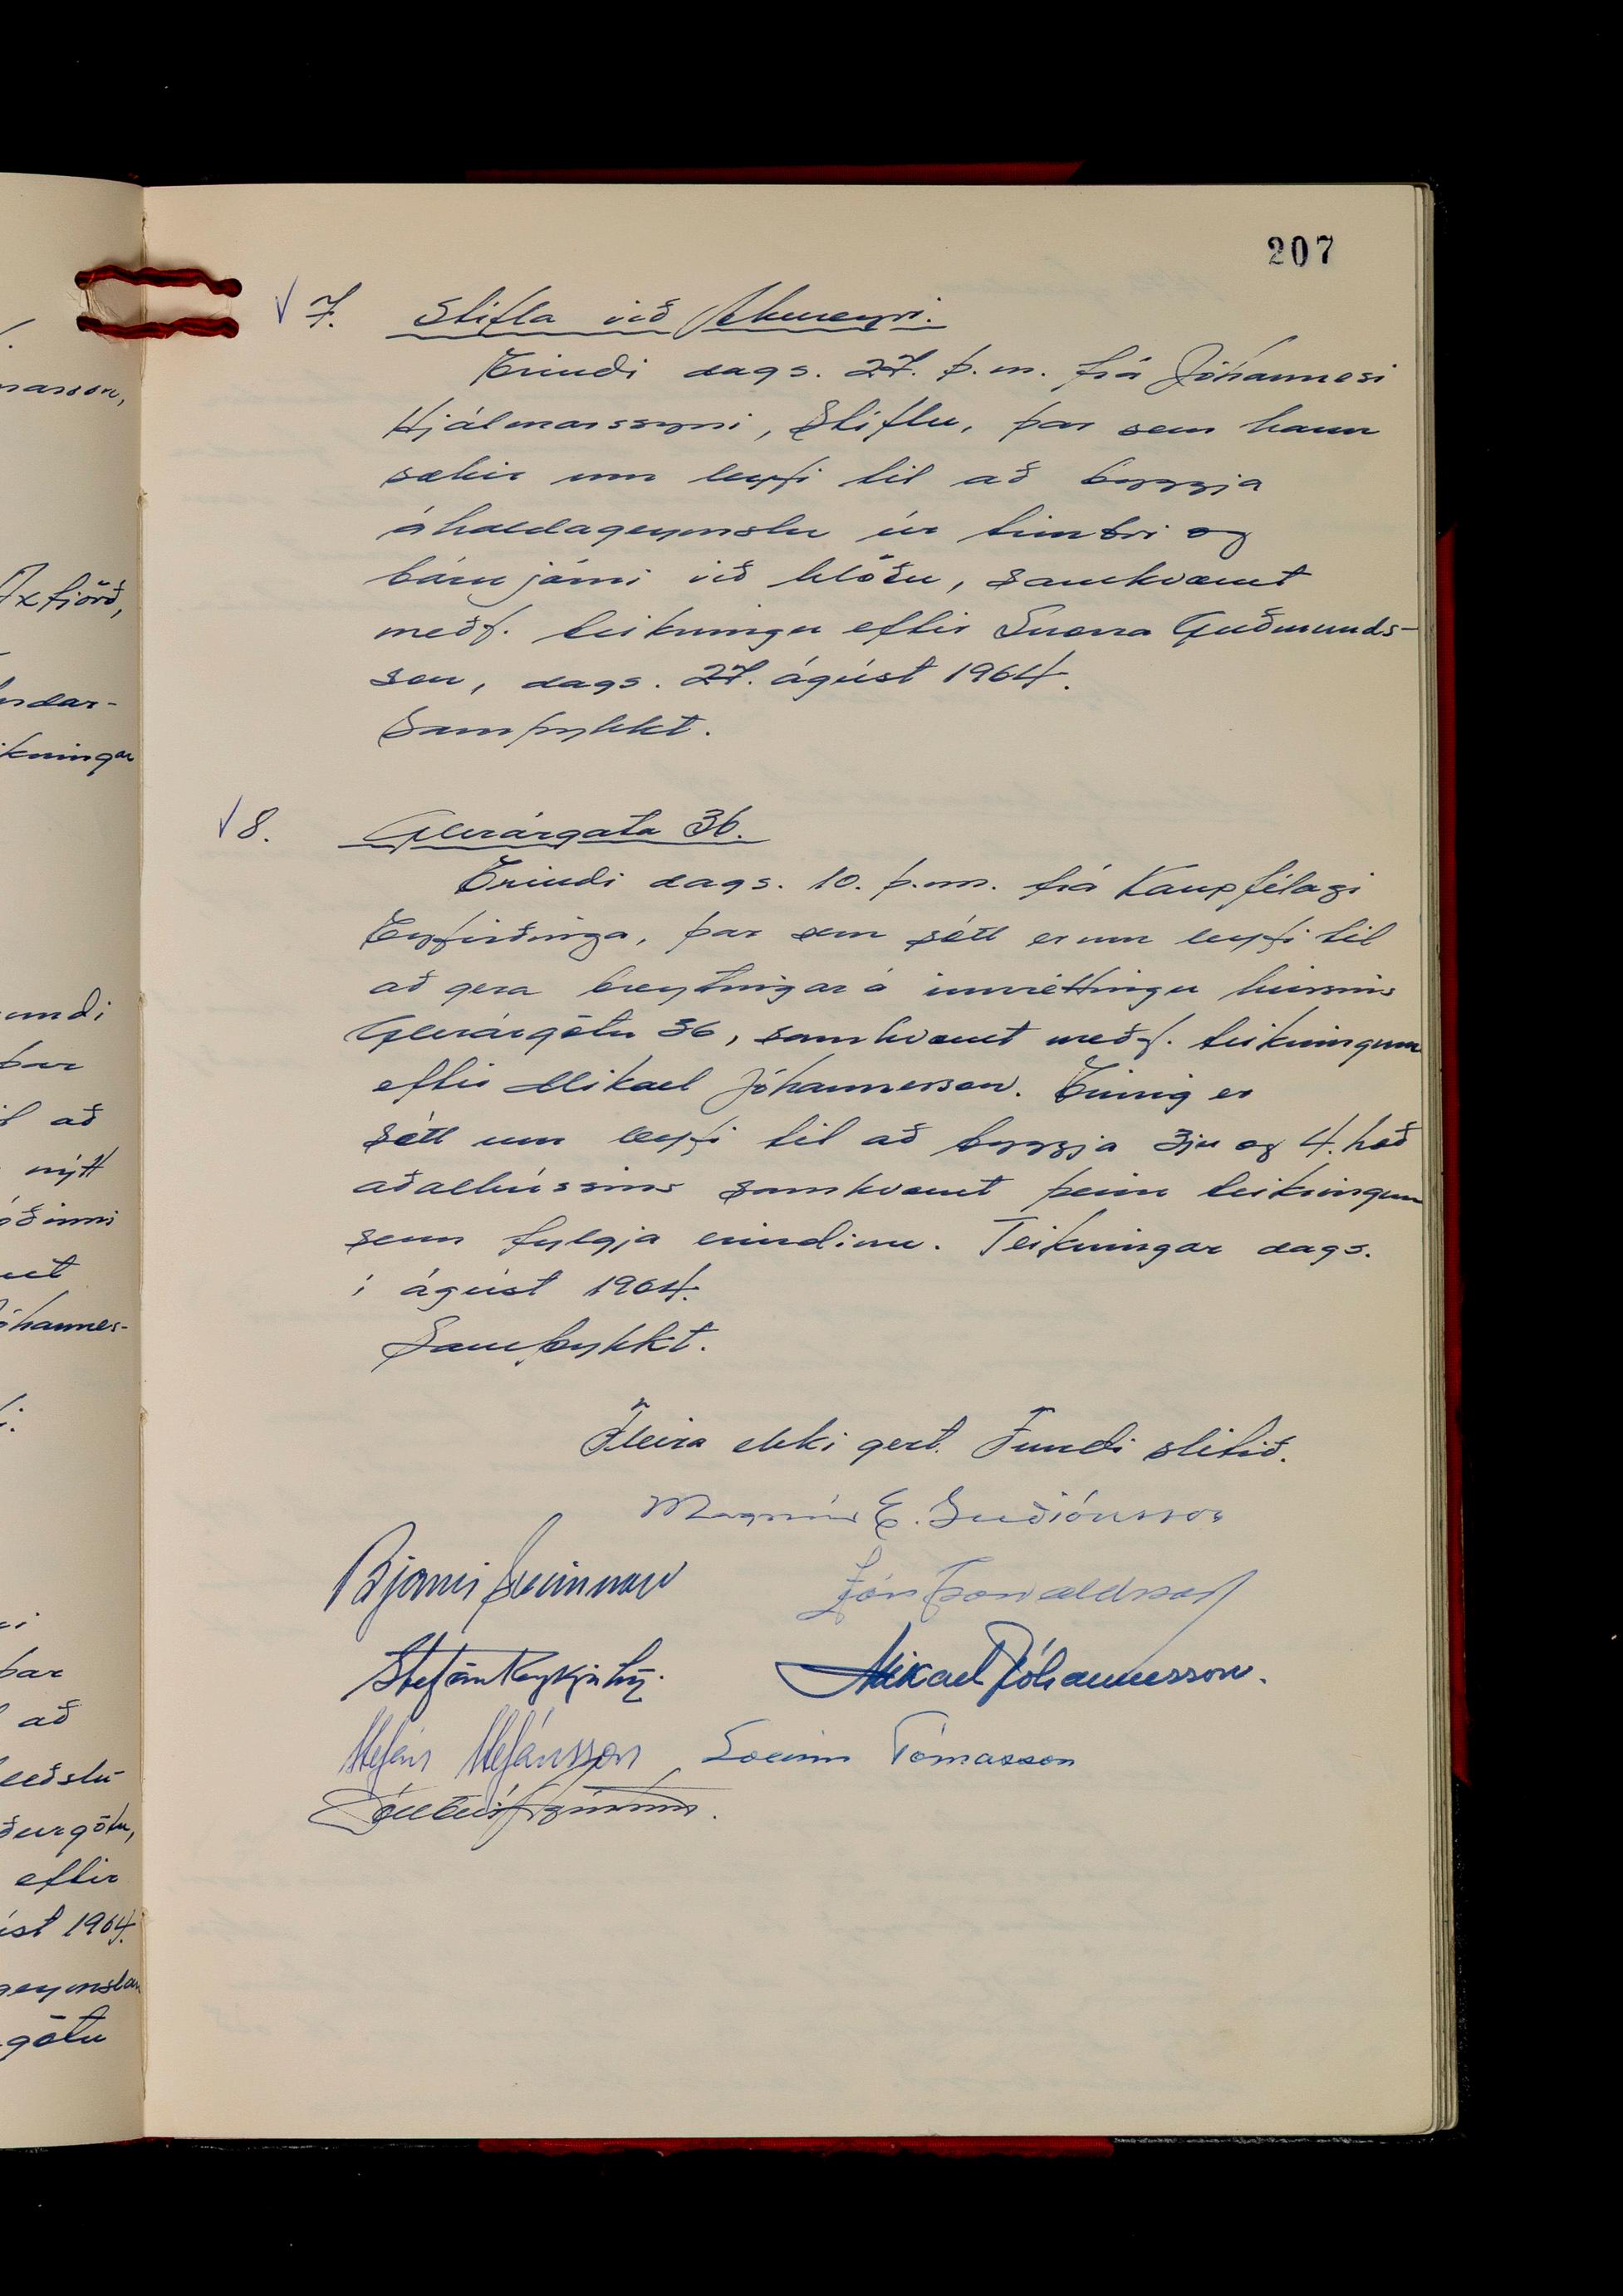 207
7. Stífla við Akureyri.
Erindi dags. 27. þ.m. frá Jóhannesi
Hjálmarssyni, Stíflu, þar sem hann
sækir um leyfi til að byggja
áhaldageymslu úr timbri og
bárujárni við hlöðu, samkvæmt
meðf. teikningu eftir Snorra Guðmunds-
son, dags. 27. ágúst 1964.
Samþykkt.
8. Glerárgata 36.
Erindi dags. 10. þ.m. frá Kaupfélagi
Eyfirðinga, þar sem sótt er um leyfi til
að gera breytingar á innréttingu hússins
Glerárgötu 36, samkvæmt meðf. teikningum
eftir Mikael Jóhannesson. Einnig er
sótt um leyfi til að byggja 3ju og 4. hæð
aðalhússins samkvæmt þeim teikningum
sem fylgja erindinu. Teikningar dags.
í ágúst 1964.
Samþykkt.
Fleira ekki gert. Fundi slitið.
Magnús E. Guðjónsson
Bjarni Jón Þorvaldsson
Stefán Reykjalín. Mikael Jóhannesson.
Stefán Stefánsson Sveinn Tómasson
nasson,
Axfjörð,
ndar-
kningar
undi
þar
að
nýtt
óðinni
óhannes-
þar
að
eftir
úst 1964.
götu